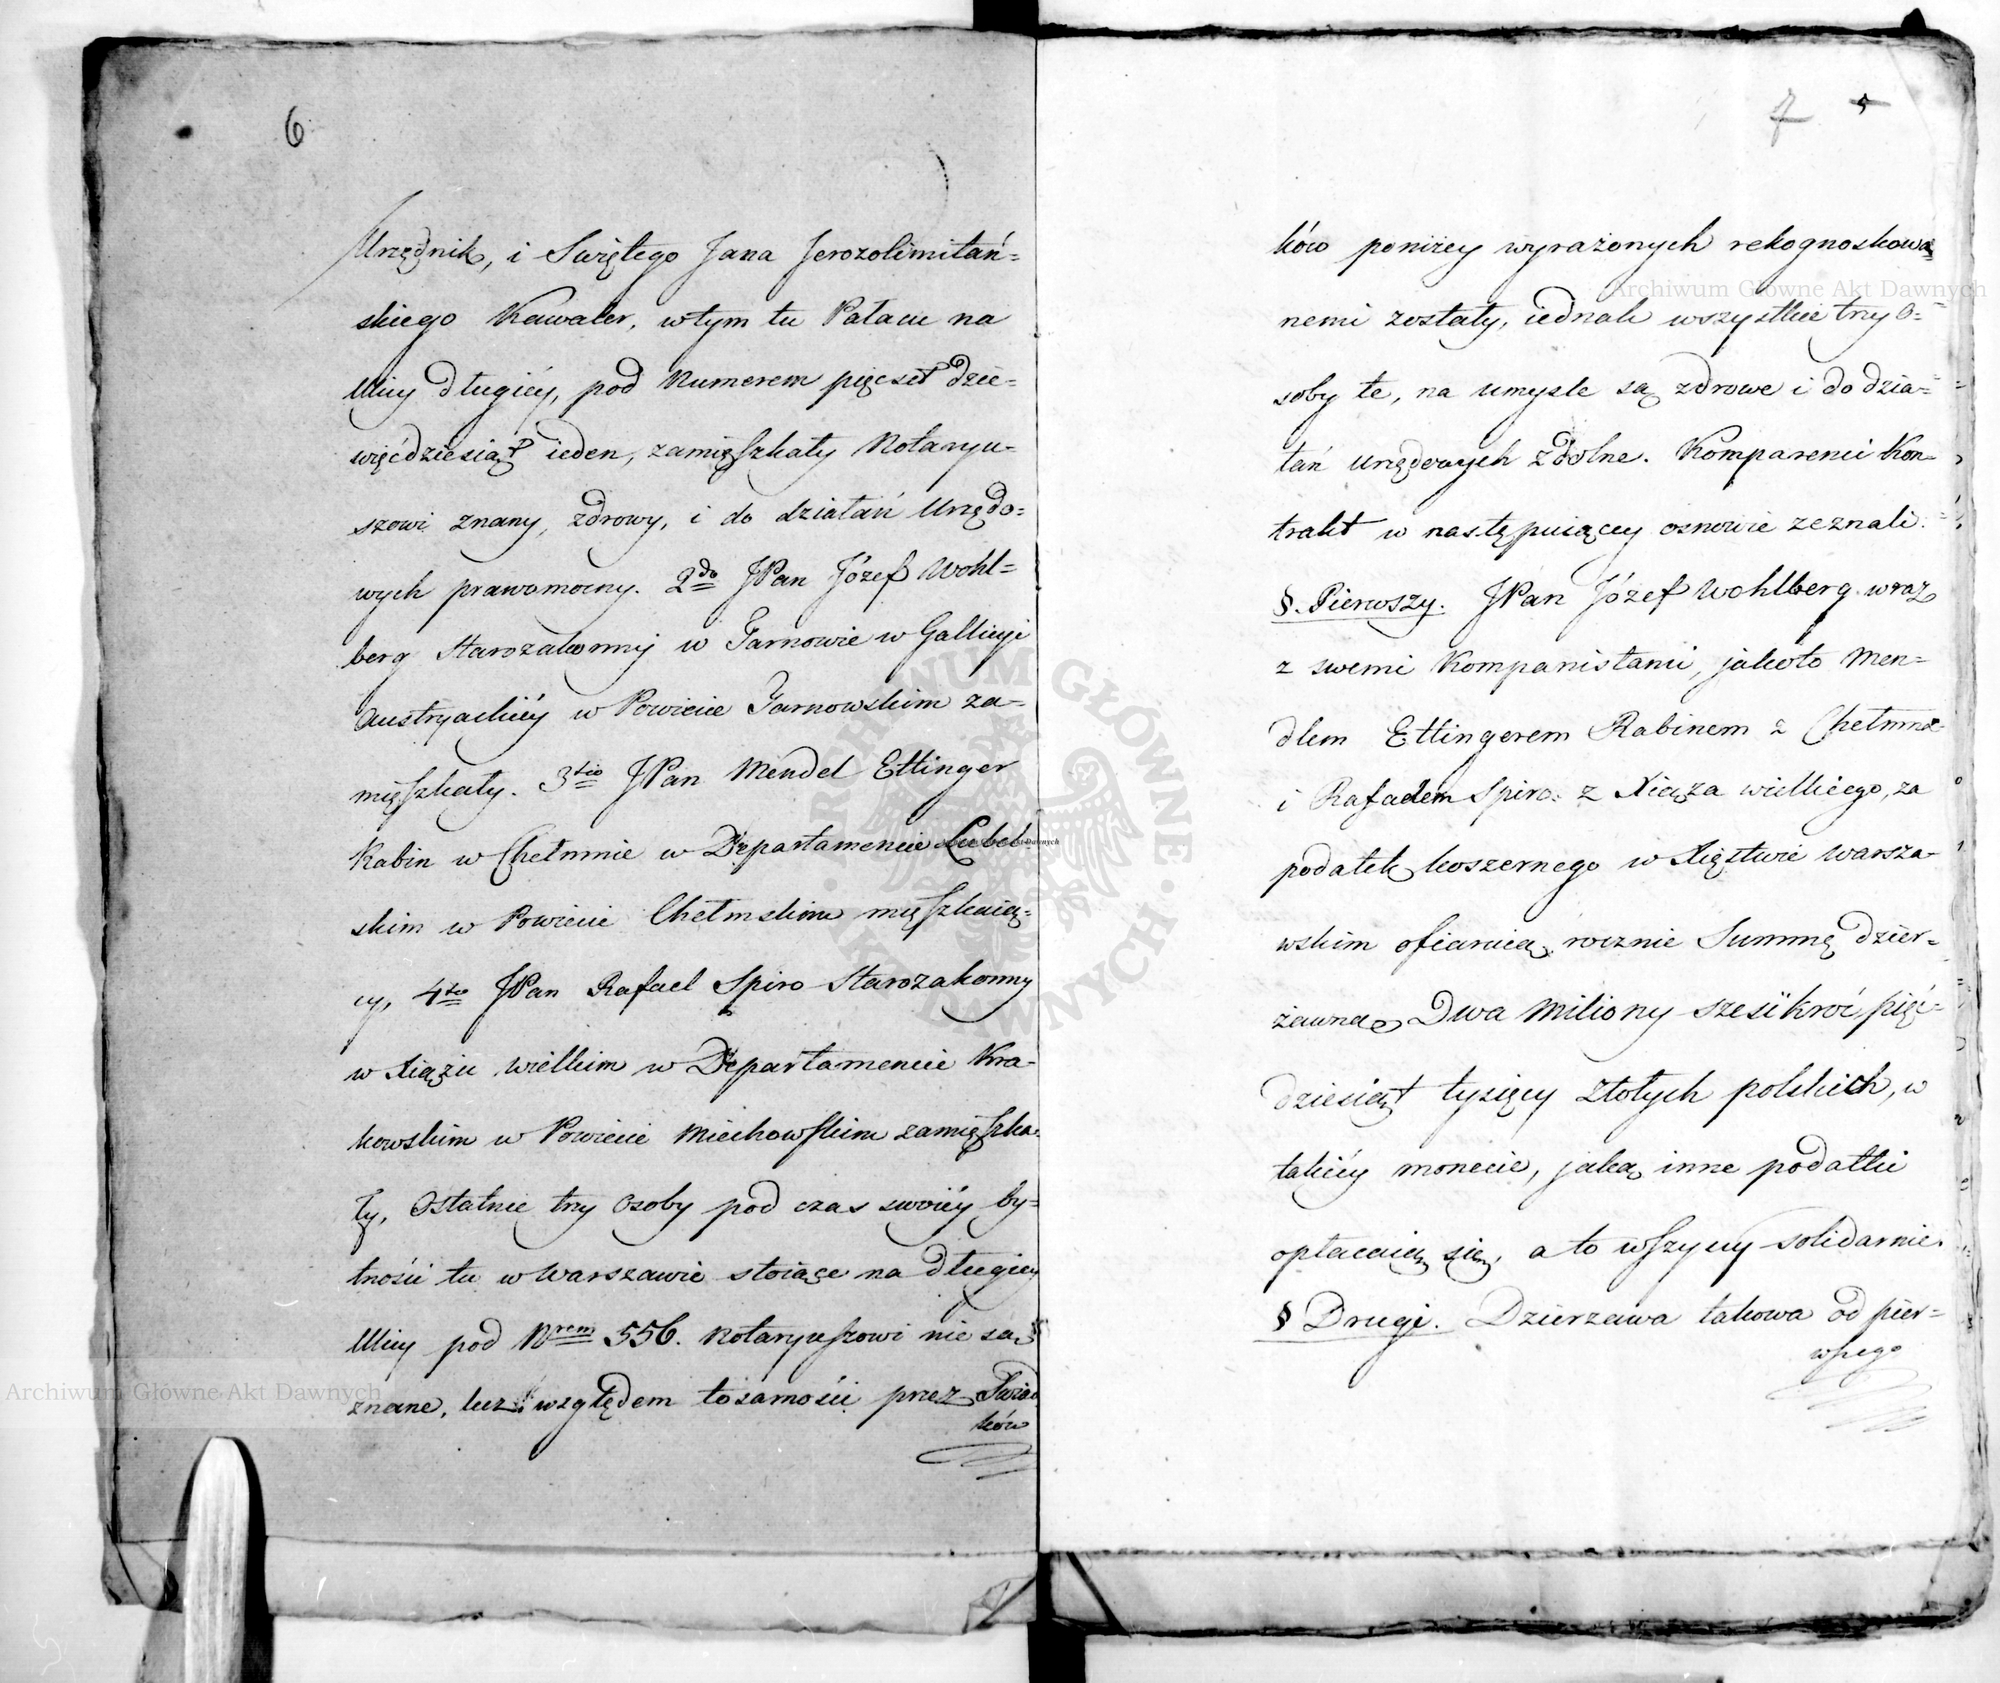 6
Urzędnik, i Swiętego Jana Jerozolimitań=
skiego Kawaler, w tym tu Pałacu na
Ulicy długiéy, pod Numerem pięcset dzie=
więćdziesiąt ieden, zamięszkały Notaryu=
szowi znany, zdrowy, i do działań Urzędo=
wych prawomocny. 2do JPan Józef Wohl=
berg Starozakonny w Tarnowie w Gallicyi
Austryackiéy w Powiecie Tarnowskim za=
mięszkały. 3tio JPan Mendel Ettinger
Rabin w Chełmnie w Departamencie Lubel
skim w Powiecie Chełmskim mięszkaią=
cy, 4to JPan Rafael Spiro Starozakonny
w Xiążu wielkim w Departamencie Kra=
kowskim w Powiecie Miechowskim zamięszka=
ły, Ostatnie trzy Osoby pod czas swoiéy by=
tności tu w Warszawie stoiące na długiey
Ulicy pod Nrem 556. Notaryuszowi nie są
znane, lecz względem tosamości przez Swiad
ków
7
ków poniżey wyrażonych rekognoskowa=
nemi zostały, iednak wszystkie trzy O=
soby te, na umysle są zdrowe i do dzia=
łań urzędowych zdolne. Komparenci Kon=
trakt w następuiącey osnowie zeznali.
§. Pierwszy. JPan Józef Wohlberg wraz
z swemi Kompanistami, jakoto Men=
dlem Ettingerem Rabinem z Chełmna
i Rafaelem Spiro z Xiąża wielkiego, za
podatek koszernego w Xięstwie Warsza=
wskim ofiaruią rocznie Summę dzier=
żawną Dwa Miliony sześćkroć pięć=
dziesiąt tysięcy złotych polskich, w
takiéy monecie, jaką inne podatki
opłacaią się, a to wszyscy solidarnie.
§ Drugi. Dzierzawa takowa od pier=
wszego
Archiwum Główne Akt Dawnych
Archiwum Główne Akt Dawnych
Archiwum Główne Akt Dawnych
ARCHIWUM GŁÓWNE AKT DAWNYCH